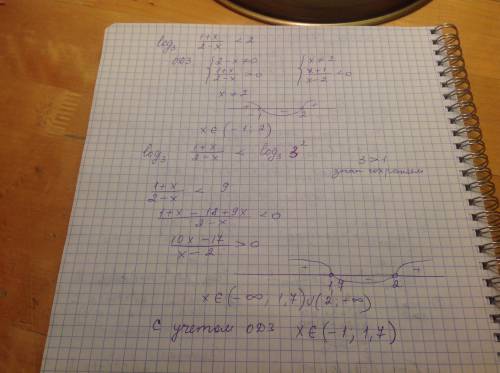 log₃ (1+x)/(2-x) < 2
ОДЗ { 2-x≠0 { x≠2
{ (1+x)/(2-x) >0 { (x+1)/(x-2) <0
x≠2
+ -1 - 2 +
x∈(-1; 2)
log₃ (1+x)/(2-x) < log₃ 3² 3>1
знак сохраняем
(1+x)/(2-x) < 9
(1+x-18+9x)/(2-x) <0
(10x-17)/(x-2) >0
+ 1,7 - 2 +
x∈(-∞; 1,7)∪(2; +∞)
С учетом ОДЗ x∈(-1; 1,7)